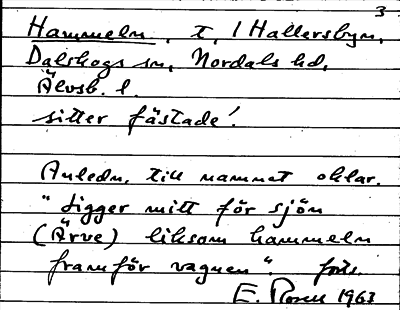 3
Hammeln, t, 1 Hallersbyn,
Dalskogs sn, Nordals hd,
Älvsb. l.
sitter fästade!
Anledn. till namnet oklar.
"Ligger mitt för sjön
(Ärve) liksom hammeln
framför vagnen". forts.
E. Rosell 1963